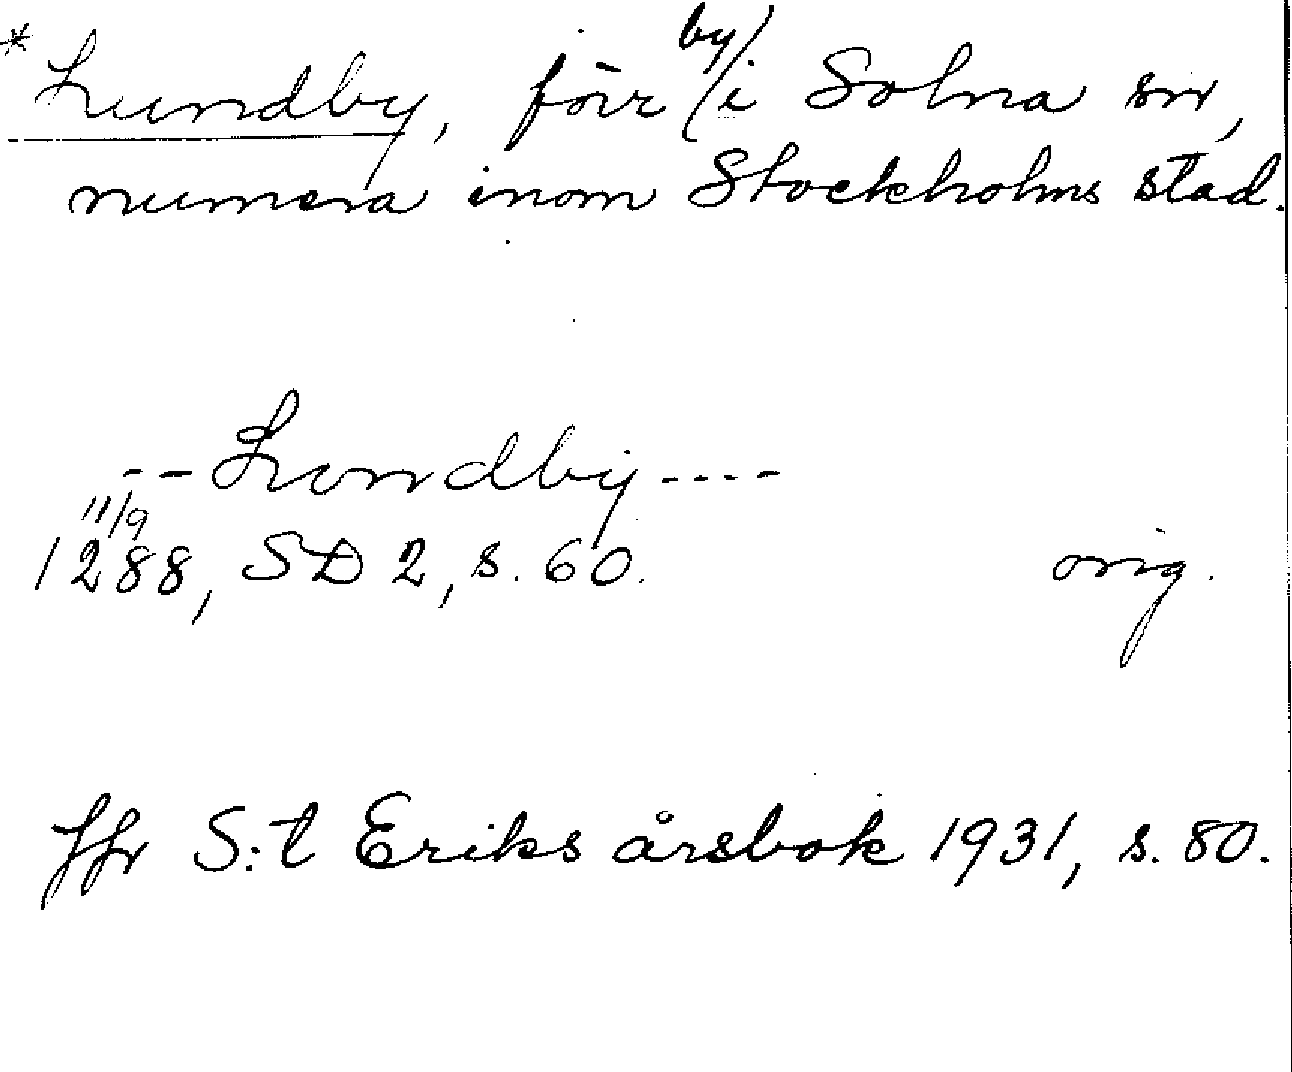 * Lundby, förr by/i Solna sn,
numera inom Stockholms stad.
-- Londby ----
11/9
1288, SD 2, s. 60. orig.
Jfr S:t Eriks årsbok 1931, s. 80.